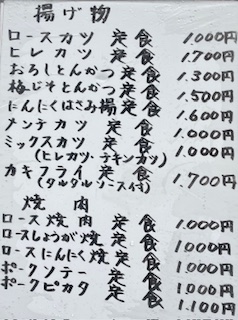 揚げ物
ロースカツ 定食 1.000円
ヒレカツ 定食 1.700円
おろしとんかつ定食 1.300円
梅じそとんかつ定食 1.500円
にんにくはさみ揚定食 1.600円
メンチカツ 定食 1.000円
ミックスカツ 定食 1.000円
(ヒレカツ・チキンカツ)
カキフライ 定食 1.700円
(タルタルソース付)
焼肉
ロース焼肉 定食 1.000円
ロースしょうが焼 定食 1000円
ロースにんにく焼 定食 1.000円
ポークソテー 定食 1.000円
ポークピカタ 定食 1.100円